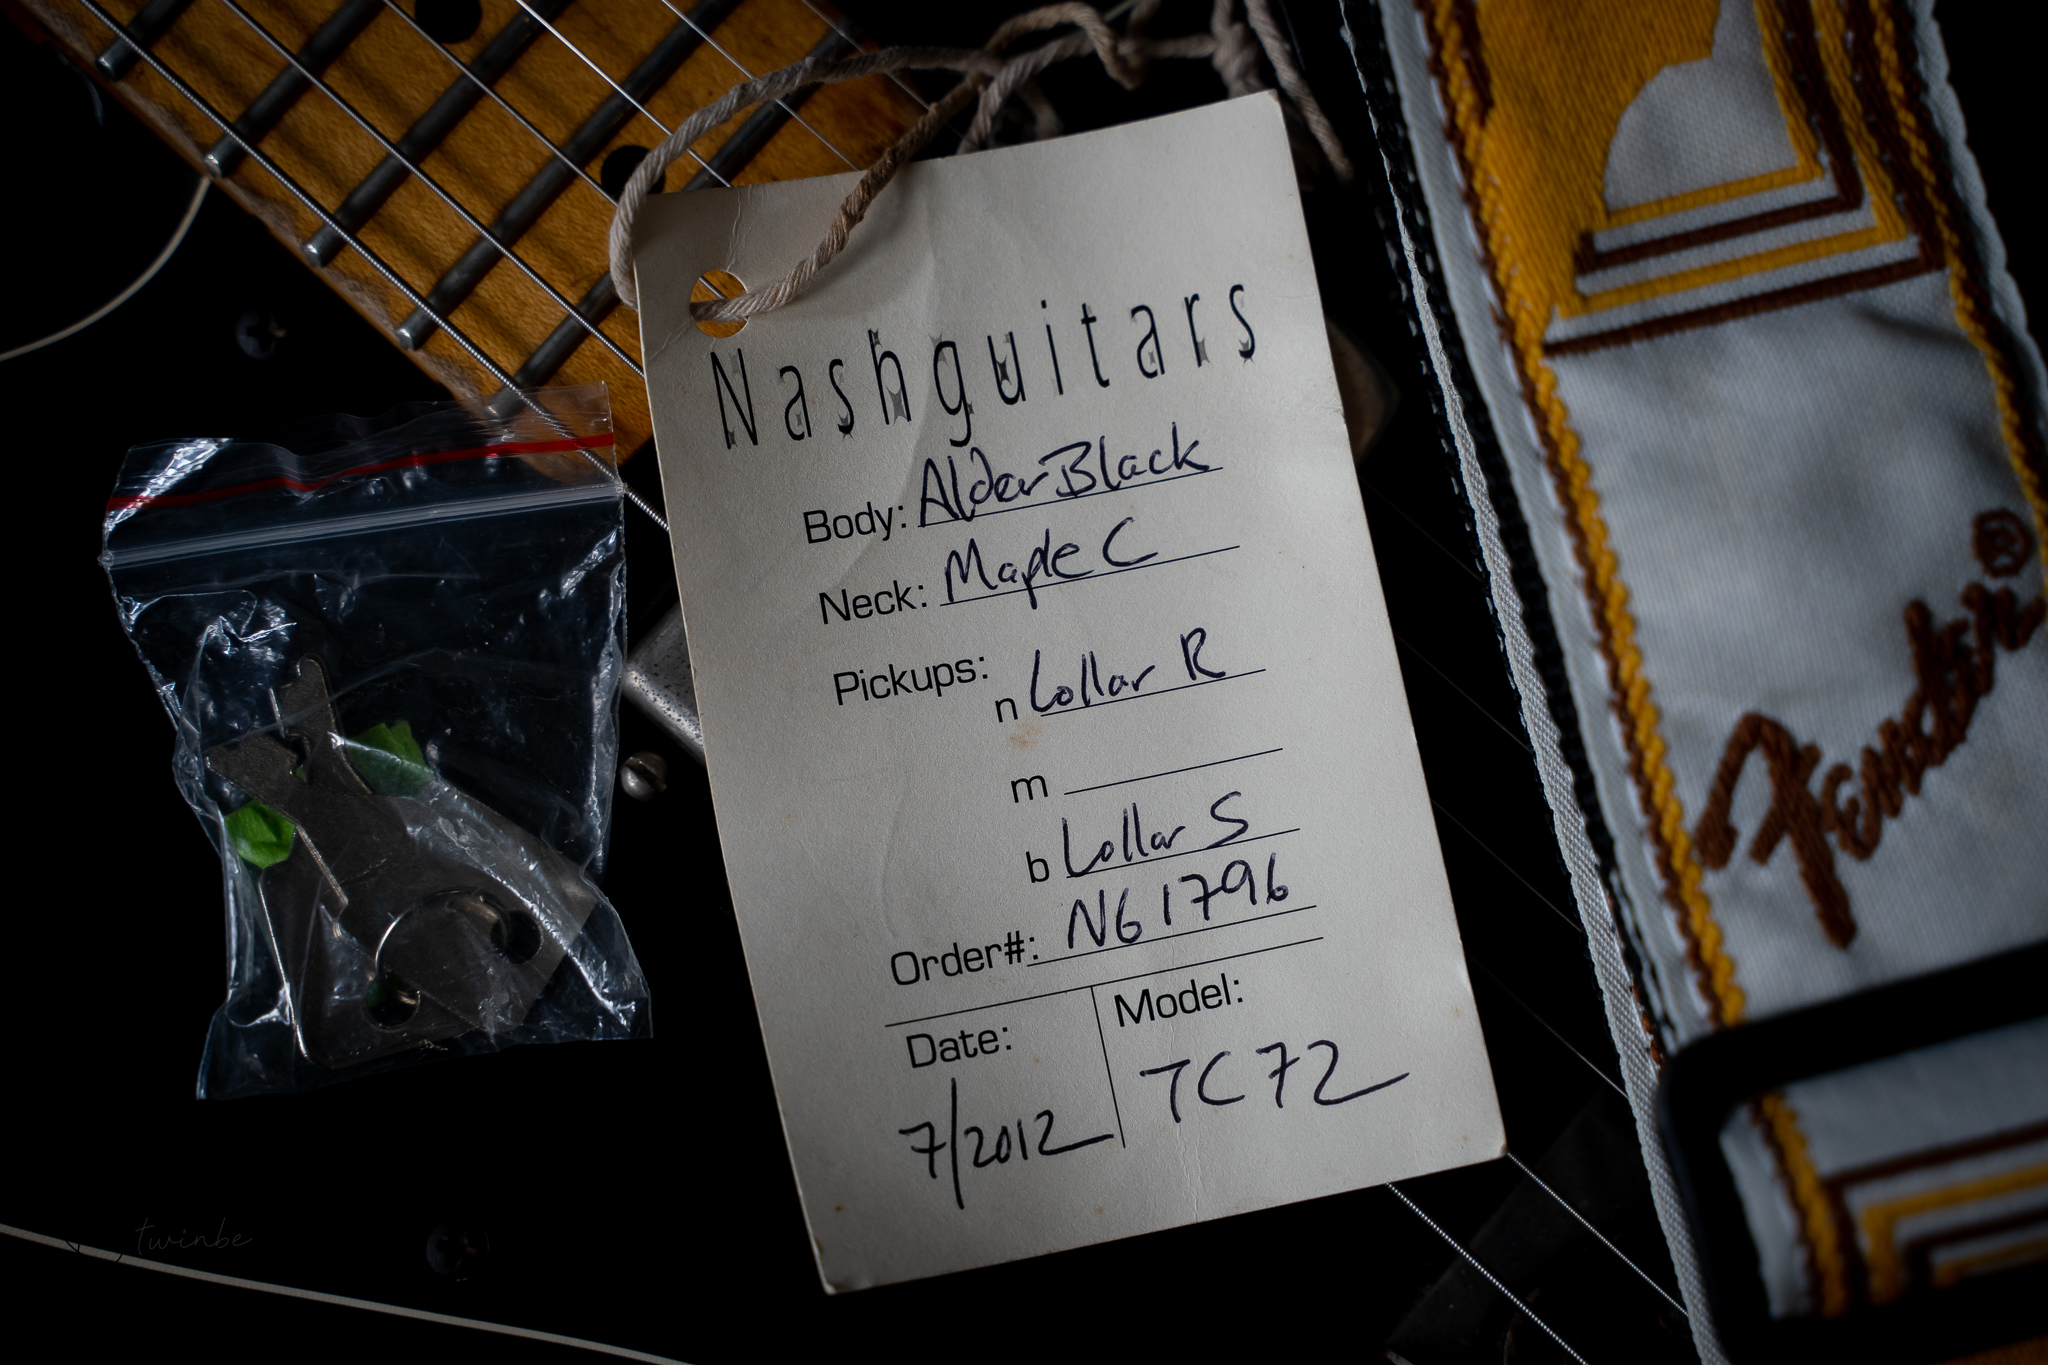 Nashguitars
Body: Alder Black
Neck: Maple C
Pickups:
n Lollar R
m
b Lollar S
Order#: NG 1796
Date:
7/2012
Model:
TC 72
Fender®
twinbe